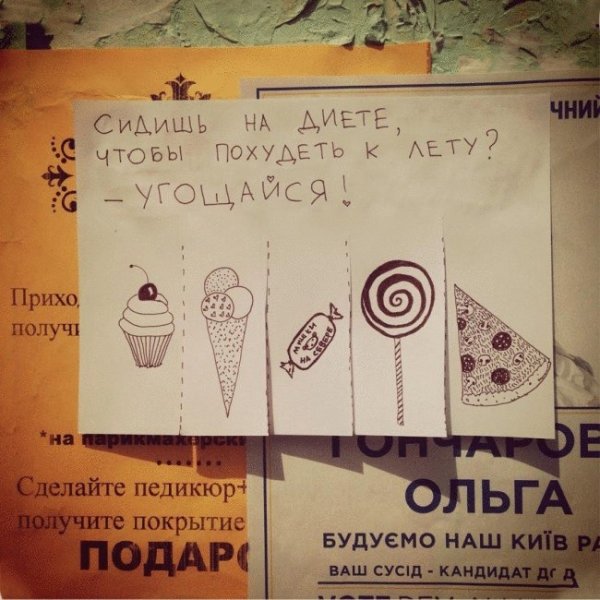 СИДИШЬ НА ДИЕТЕ,
ЧТОБЫ ПОХУДЕТЬ К ЛЕТУ?
— УГОЩАЙСЯ!
МИШКИ
НА СЕВЕРЕ
ЧНИЙ
Прихо
получи
*на парикмахерски
Сделайте педикюр+
получите покрытие
ПОДАР
ГОНЧАРОВ
ОЛЬГА
БУДУЄМО НАШ КИЇВ РА
ВАШ СУСІД - КАНДИДАТ